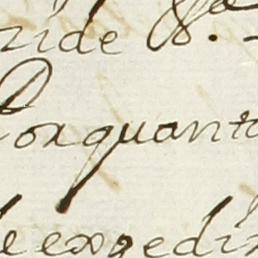 ride
Porquanto
de expedir